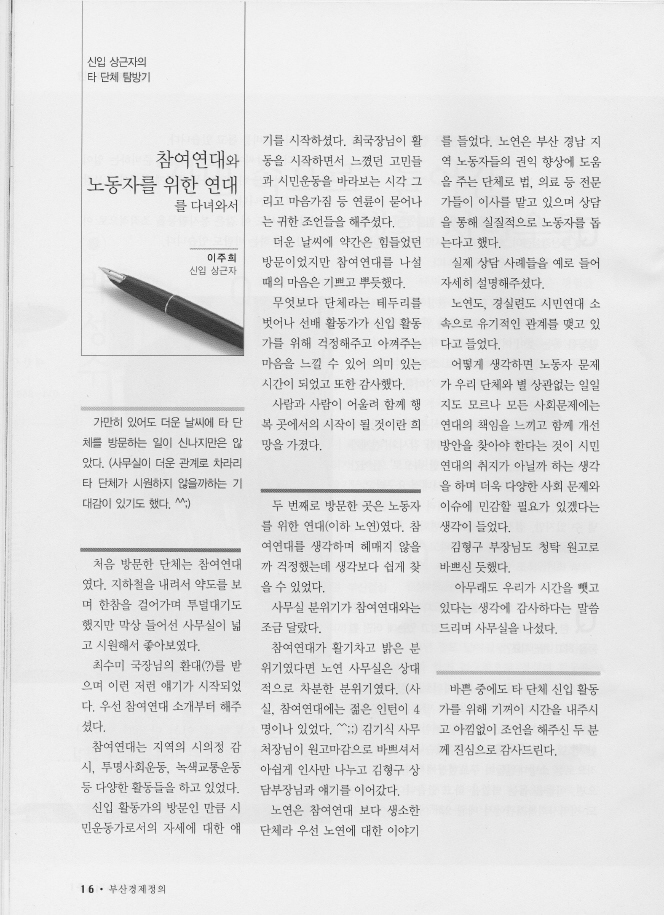 신입 상근자의
타 단체 탐방기
참여연대와
노동자를 위한 연대
를 다녀와서
이주희
신입 상근자
가만히 있어도 더운 날씨에 타 단
체를 방문하는 일이 신나지만은 않
았다. (사무실이 더운 관계로 차라리
타 단체가 시원하지 않을까하는 기
대감이 있기도 했다. ^^;)
처음 방문한 단체는 참여연대
였다. 지하철을 내려서 약도를 보
며 한참을 걸어가며 투덜대기도
했지만 막상 들어선 사무실이 넓
고 시원해서 좋아보였다.
최수미 국장님의 환대(?)를 받
으며 이런 저런 얘기가 시작되었
다. 우선 참여연대 소개부터 해주
셨다.
참여연대는 지역의 시의정 감
시, 투명사회운동, 녹색교통운동
등 다양한 활동들을 하고 있었다.
신입 활동가의 방문인 만큼 시
민운동가로서의 자세에 대한 얘
기를 시작하셨다. 최국장님이 활
동을 시작하면서 느꼈던 고민들
과 시민운동을 바라보는 시각 그
리고 마음가짐 등 연륜이 묻어나
는 귀한 조언들을 해주셨다.
더운 날씨에 약간은 힘들었던
방문이었지만 참여연대를 나설
때의 마음은 기쁘고 뿌듯했다.
무엇보다 단체라는 테두리를
벗어나 선배 활동가가 신입 활동
가를 위해 걱정해주고 아껴주는
마음을 느낄 수 있어 의미 있는
시간이 되었고 또한 감사했다.
사람과 사람이 어울려 함께 행
복 곳에서의 시작이 될 것이란 희
망을 가졌다.
두 번째로 방문한 곳은 노동자
를 위한 연대(이하 노연)였다. 참
여연대를 생각하며 헤매지 않을
까 걱정했는데 생각보다 쉽게 찾
을 수 있었다.
사무실 분위기가 참여연대와는
조금 달랐다.
참여연대가 활기차고 밝은 분
위기였다면 노연 사무실은 상대
적으로 차분한 분위기였다. (사
실, 참여연대에는 젊은 인턴이 4
명이나 있었다. ^^;;) 김기식 사무
처장님이 원고마감으로 바쁘셔서
아쉽게 인사만 나누고 김형구 상
담부장님과 얘기를 이어갔다.
노연은 참여연대 보다 생소한
단체라 우선 노연에 대한 이야기
를 들었다. 노연은 부산 경남 지
역 노동자들의 권익 향상에 도움
을 주는 단체로 법, 의료 등 전문
가들이 이사를 맡고 있으며 상담
을 통해 실질적으로 노동자를 돕
는다고 했다.
실제 상담 사례들을 예로 들어
자세히 설명해주셨다.
노연도, 경실련도 시민연대 소
속으로 유기적인 관계를 맺고 있
다고 들었다.
어떻게 생각하면 노동자 문제
가 우리 단체와 별 상관없는 일일
지도 모르나 모든 사회문제에는
연대의 책임을 느끼고 함께 개선
방안을 찾아야 한다는 것이 시민
연대의 취지가 아닐까 하는 생각
을 하며 더욱 다양한 사회 문제와
이슈에 민감할 필요가 있겠다는
생각이 들었다.
김형구 부장님도 청탁 원고로
바쁘신 듯했다.
아무래도 우리가 시간을 뺏고
있다는 생각에 감사하다는 말씀
드리며 사무실을 나섰다.
바쁜 중에도 타 단체 신입 활동
가를 위해 기꺼이 시간을 내주시
고 아낌없이 조언을 해주신 두 분
께 진심으로 감사드린다.
16 • 부산경제정의